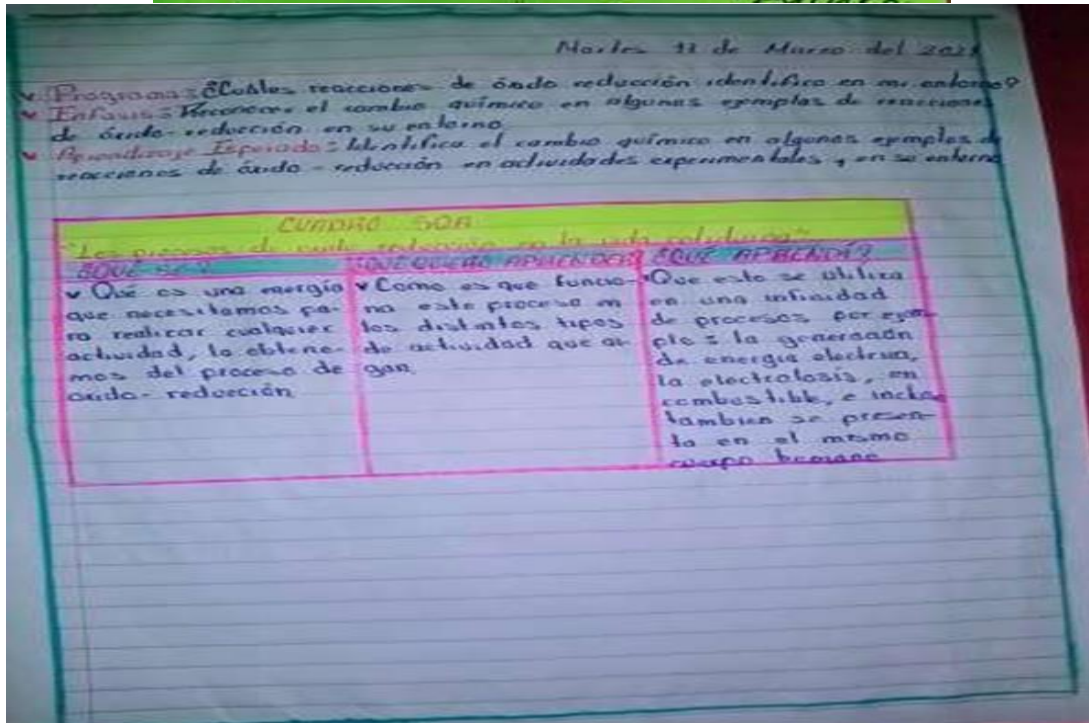 Martes 13 de Marzo del 2021
Programa: ¿Cuáles reacciones de óxido reducción identifico en mi entorno?
Énfasis: Reconocer el cambio químico en algunos ejemplos de reacciones
de óxido-reducción en su entorno
Aprendizaje Esperado: Identifica el cambio químico en algunos ejemplos de
reacciones de óxido-reducción en actividades experimentales y en su entorno
CUADRO SQA
"Los procesos de óxido reducción en la vida cotidiana"
¿QUÉ SÉ?
Qué es una energía
que necesitamos pa-
ra realizar cualquier
actividad, la obtene-
mos del proceso de
óxido-reducción
¿QUÉ QUIERO APRENDER?
Como es que funcio-
na este proceso en
los distintos tipos
de actividad que
gan
¿QUÉ APRENDÍ?
Que esto se utiliza
en una infinidad
de procesos por ejem-
plo: la generación
de energía electrica,
la electrolosis, en
combustible, e inclu
tambien se presen-
ta en el mismo
cuerpo humano